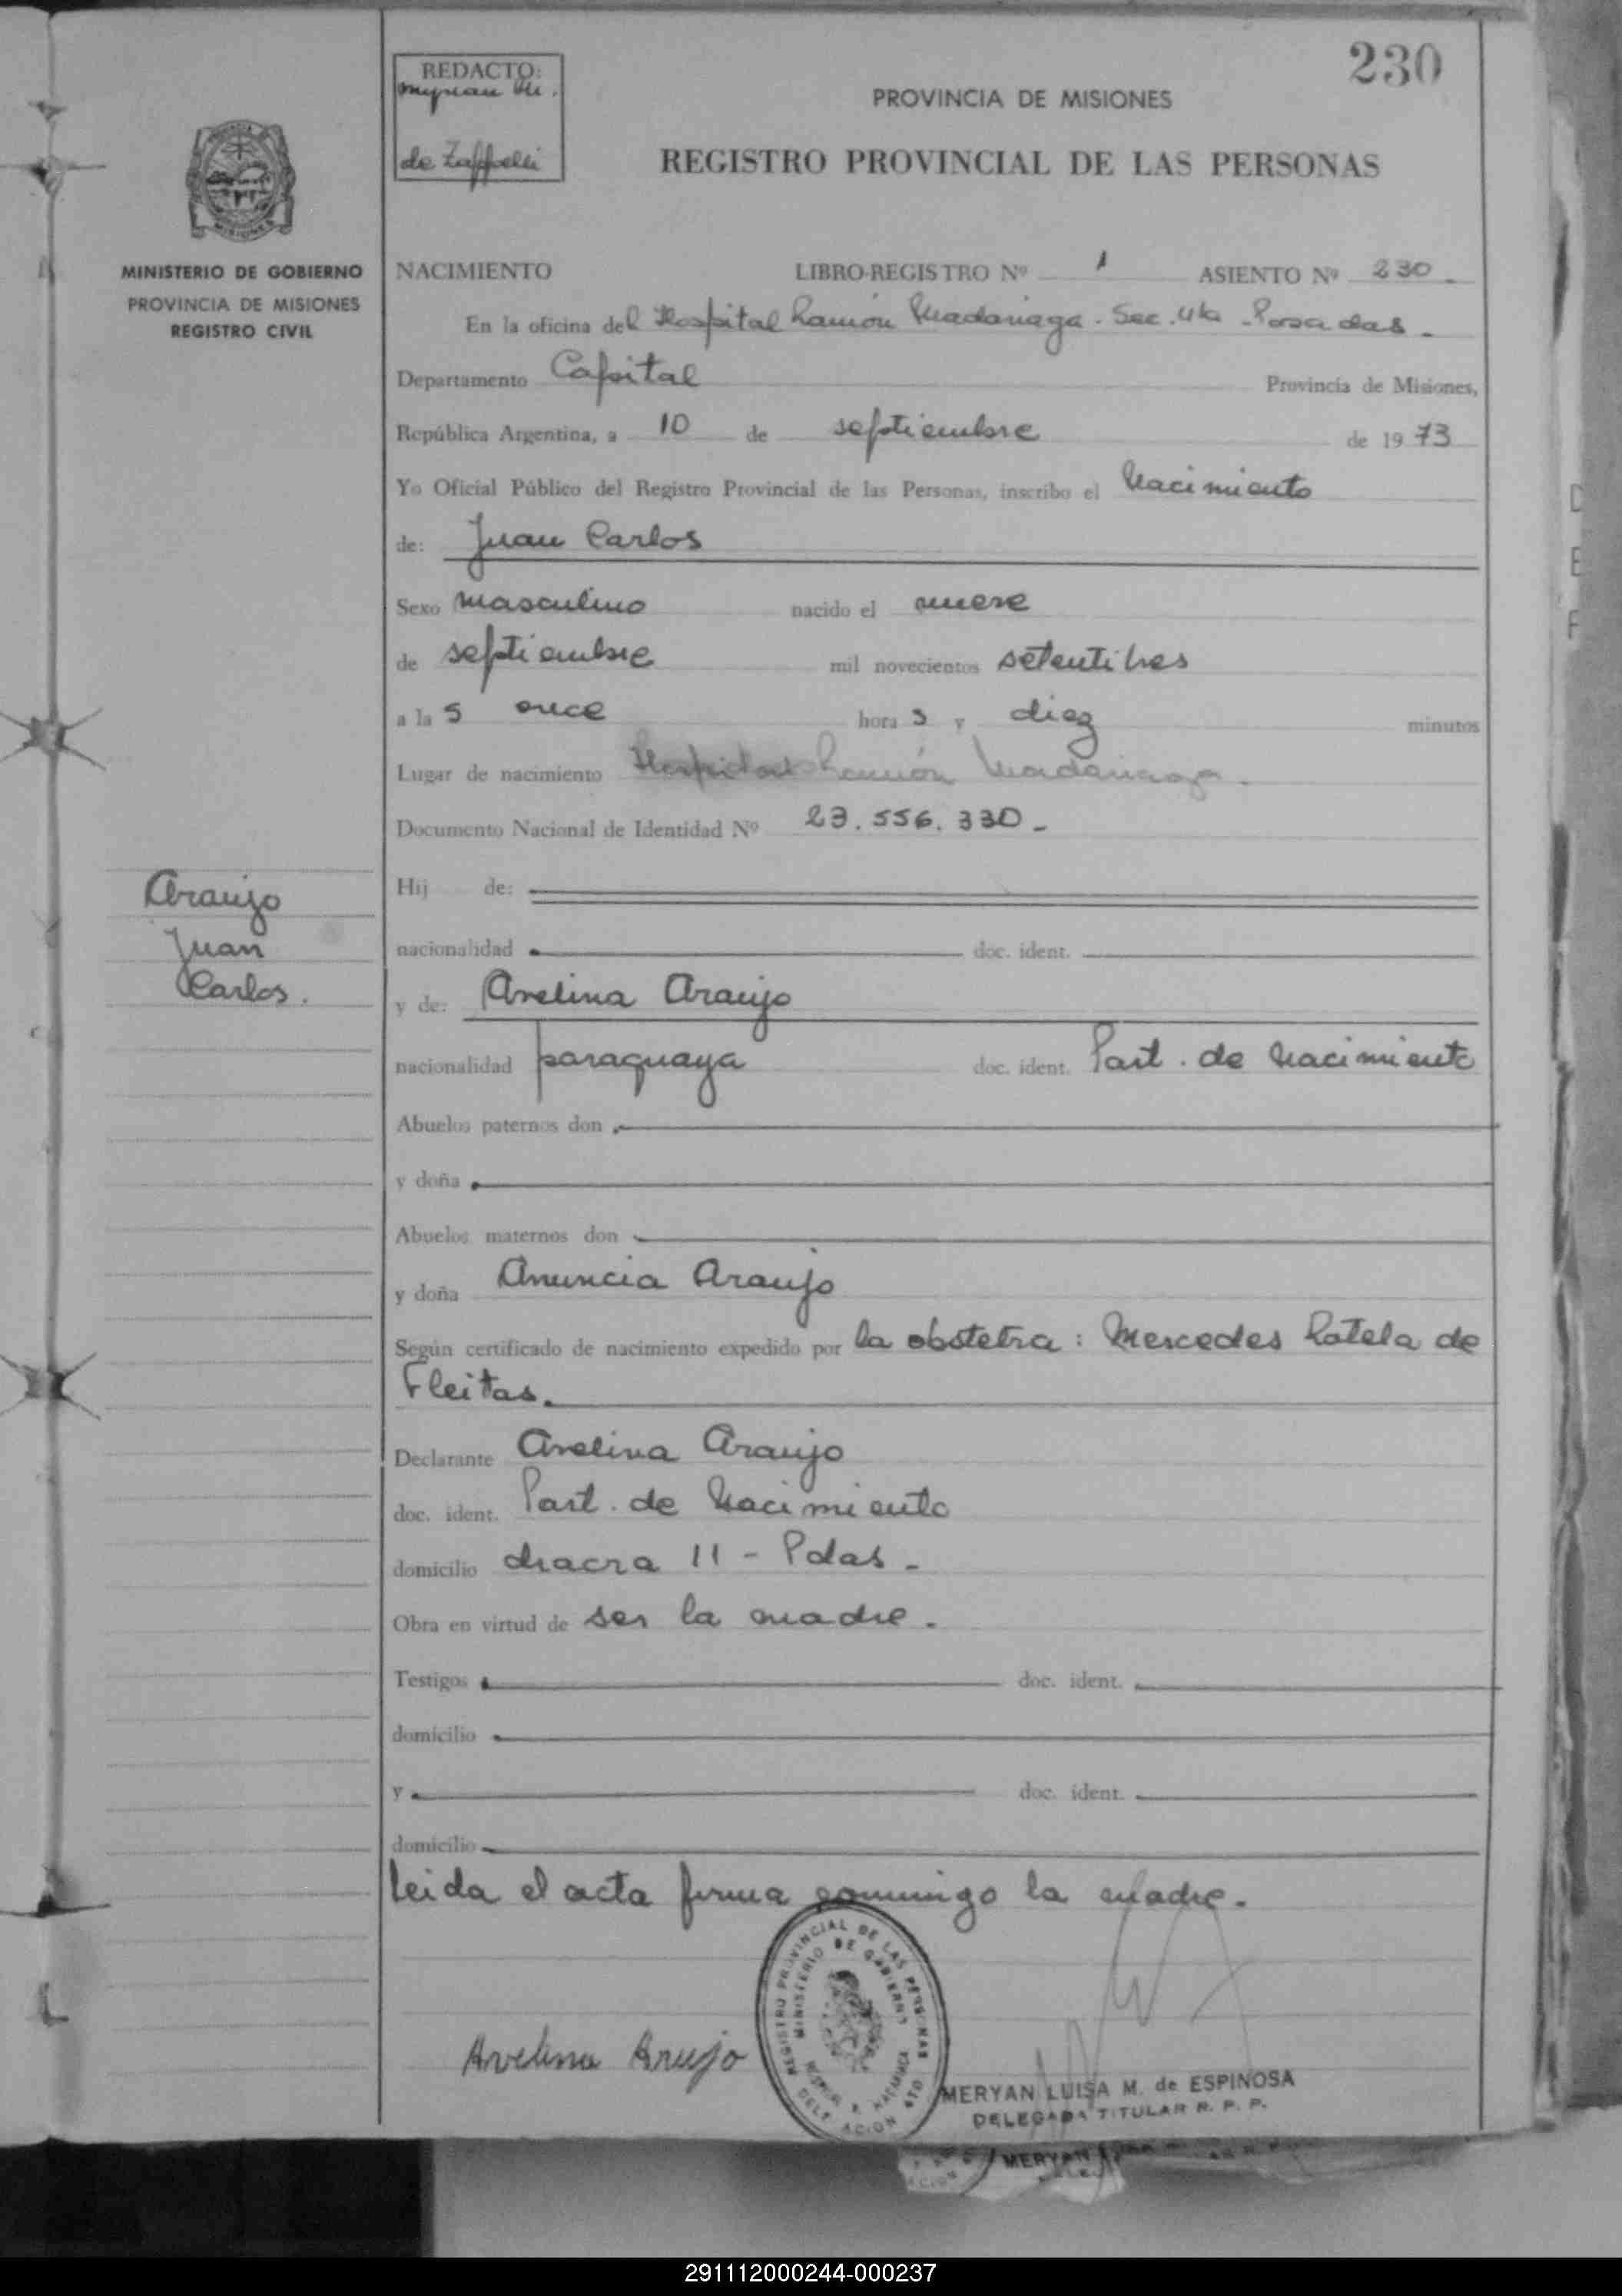 230
REDACTO:
Myrian M.
de Zappelli
PROVINCIA DE MISIONES
REGISTRO PROVINCIAL DE LAS PERSONAS
MINISTERIO DE GOBIERNO
PROVINCIA DE MISIONES
REGISTRO CIVIL
NACIMIENTO LIBRO-REGISTRO Nº 1 ASIENTO Nº 230
En la oficina del Hospital Ramón Madariaga - Sec. 4ta - Posadas -
Departamento Capital Provincia de Misiones,
República Argentina, a 10 de septiembre de 1973
Yo Oficial Público del Registro Provincial de las Personas, inscribo el Nacimiento
de: Juan Carlos
Sexo masculino nacido el nueve
de septiembre mil novecientos setentitres
a las once horas y diez minutos
Lugar de nacimiento Hospital Ramón Madariaga -
Documento Nacional de Identidad Nº 23.556.330 -
Araujo
Juan
Carlos.
Hij de:
nacionalidad doc. ident.
y de: Avelina Araujo
nacionalidad paraguaya doc. ident. Part. de Nacimiento
Abuelos paternos don
y doña
Abuelos maternos don
y doña Anuncia Araujo
Según certificado de nacimiento expedido por la obstetra: Mercedes Rotela de
Fleitas.
Declarante Avelina Araujo
doc. ident. Part. de Nacimiento
domicilio chacra 11 - Pdas -
Obra en virtud de ser la madre.
Testigos doc. ident.
domicilio
y doc. ident.
domicilio
leida el acta firma conmigo la madre.
REGISTRO PROVINCIAL DE LAS PERSONAS
MINISTERIO DE GOBIERNO
Avelina Arujo
MERYAN LUISA M. de ESPINOSA
DELEGADA TITULAR R. P. P.
MERYAN
291112000244-000237